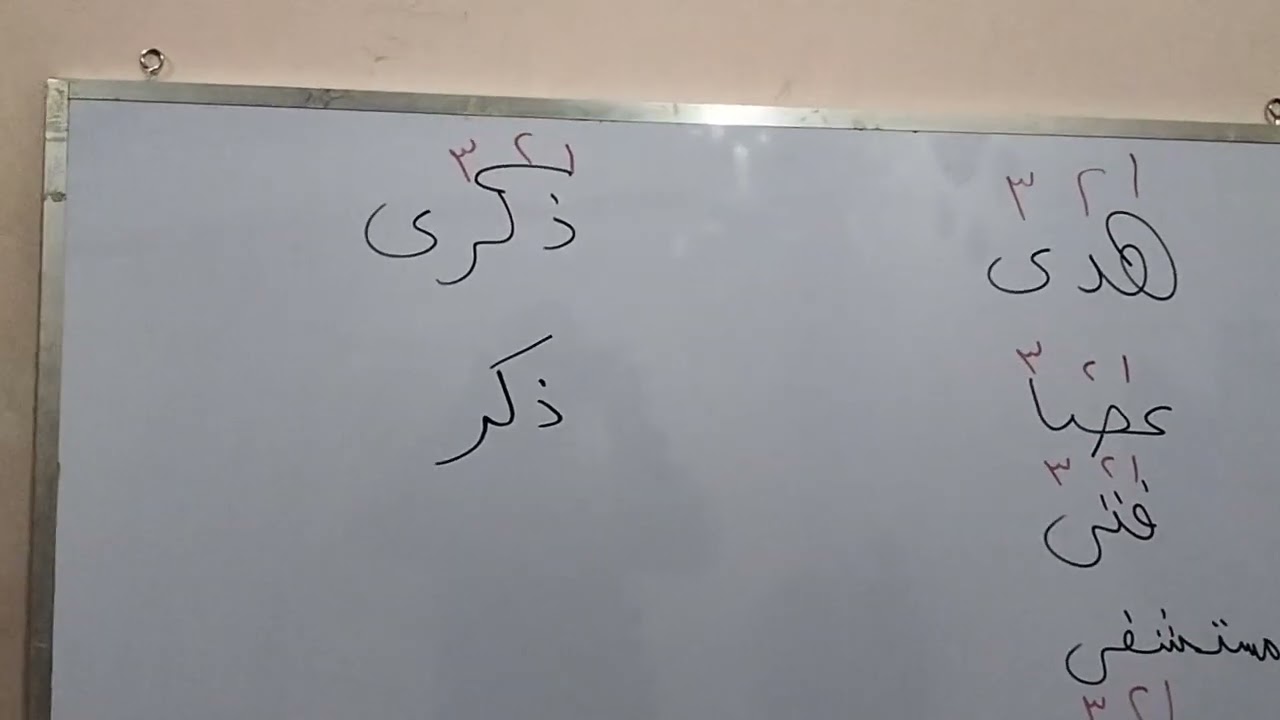 ١ ٢ ٣
هدى
١ ٢ ٣
عصا
١ ٢ ٣
فتى
مستشفى
١ ٢ ٣
١ ٢ ٣
ذكرى
ذكر